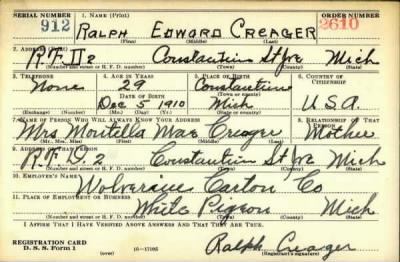 SERIAL NUMBER 1. NAME (Print) ORDER NUMBER
912 RALPH EDWARD CREAGER 2610
(First) (Middle) (Last)
2. ADDRESS (Print)
R.F.D. 2 Constantine St Joe Mich
(Number and street or R. F. D. number) (Town) (County) (State)
3. TELEPHONE 4. AGE IN YEARS 5. PLACE OF BIRTH 6. COUNTRY OF CITIZENSHIP
None 29 Constantine
DATE OF BIRTH (Town or county)
Dec 5 1910 Mich U.S.A.
(Exchange) (Number) (Mo.) (Day) (Yr.) (State or country)
7. NAME OF PERSON WHO WILL ALWAYS KNOW YOUR ADDRESS 8. RELATIONSHIP OF THAT PERSON
Mrs Mae Creager Mother
(Mr., Mrs., Miss) (First) (Middle) (Last)
9. ADDRESS OF THAT PERSON
R.F.D. 2 Constantine St Joe Mich
(Number and street or R. F. D. number) (Town) (County) (State)
10. EMPLOYER'S NAME
Wolverine Carton Co
11. PLACE OF EMPLOYMENT OR BUSINESS
White Pigeon Mich
(Number and street or R. F. D. number) (Town) (County) (State)
I AFFIRM THAT I HAVE VERIFIED ABOVE ANSWERS AND THAT THEY ARE TRUE.
REGISTRATION CARD
D. S. S. Form 1 16-17105 Ralph Creager